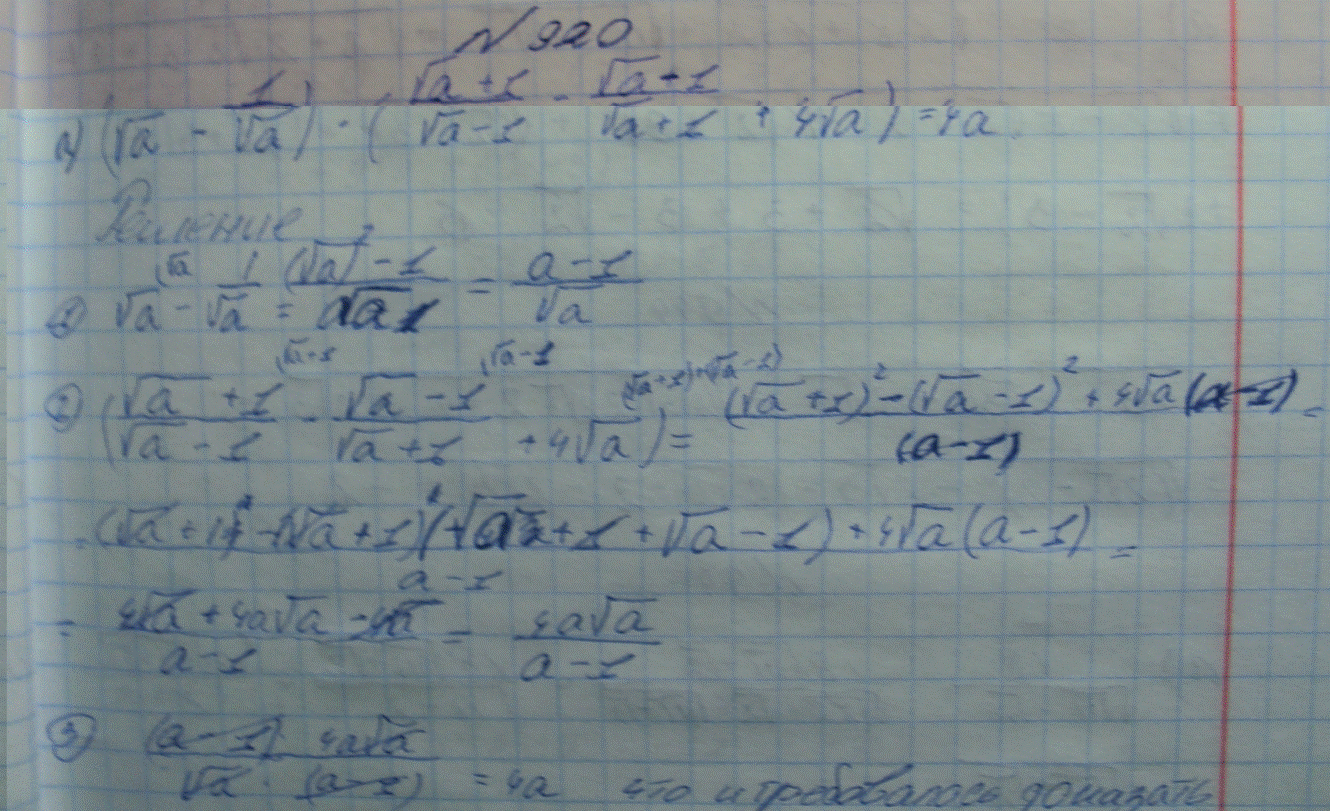 N 920
а) (√a - 1/√a) · (√a+1/√a-1 - √a-1/√a+1 + 4√a) = 4a
Решение
① √a - 1/√a = (√a)² - 1/√a = a-1/√a
② (√a+1/√a-1 - √a-1/√a+1 + 4√a) = (√a+1)² - (√a-1)² + 4√a(a-1)/(a-1) =
(√a+1 - √a+1)(√a+1+√a-1) + 4√a(a-1)/a-1 =
= 4√a + 4a√a - 4√a/a-1 = 4a√a/a-1
③ (a-1) 4a√a/√a · (a-1) = 4a что и требовалось доказать